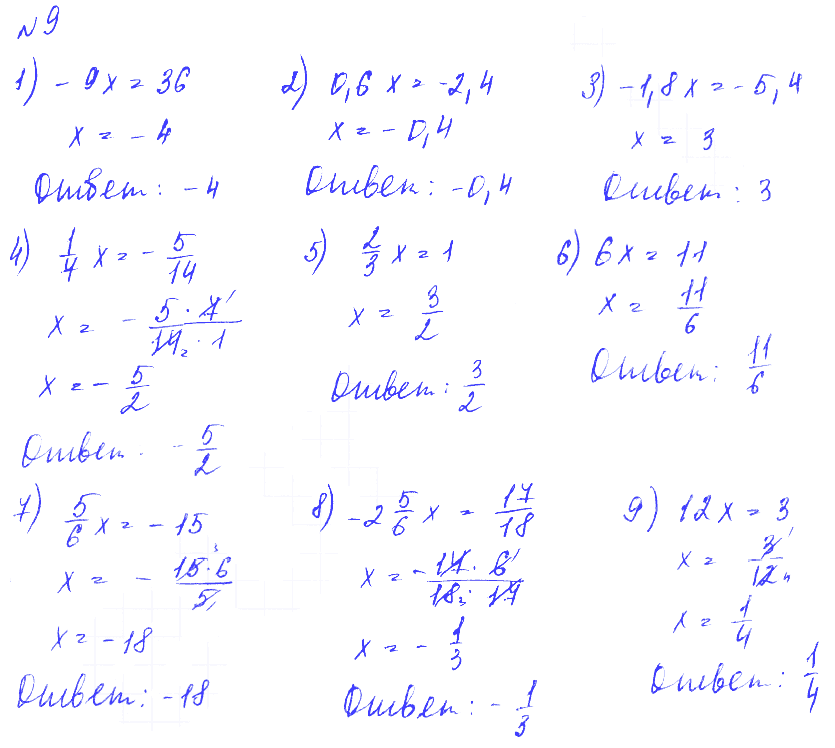 №9
1) -9x = 36
x = -4
Ответ: -4
2) 0,6x = -2,4
x = -0,4
Ответ: -0,4
3) -1,8x = -5,4
x = 3
Ответ: 3
4) 1/7 x = - 5/14
x = - 5·7 1/14 2·1
x = - 5/2
Ответ. - 5/2
5) 2/3 x = 1
x = 3/2
Ответ: 3/2
6) 6x = 11
x = 11/6
Ответ: 11/6
7) 5/6 x = -15
x = - 15 3·6/5 1
x = -18
Ответ: -18
8) -2 5/6 x = 17/18
x = - 17·6 1/18 3·17
x = - 1/3
Ответ: - 1/3
9) 12x = 3
x = 3 1/12 4
x = 1/4
Ответ: 1/4